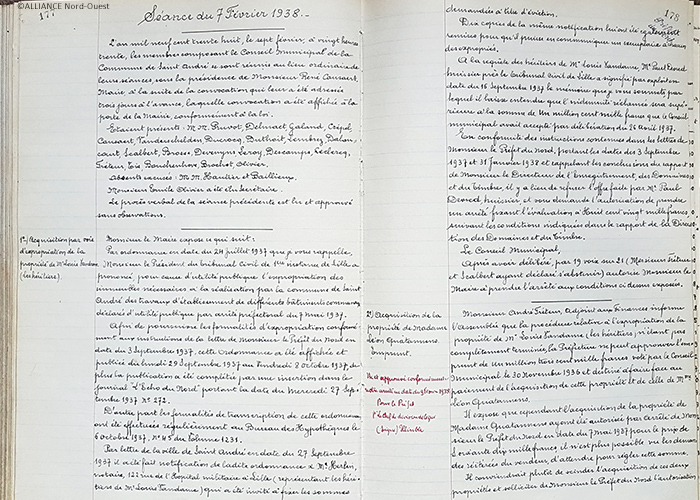 ©ALLIANCE Nord-Ouest
177
Séance du 7 Février 1938.-
L'an mil neuf cent trente huit, le sept février, à vingt heures
trente, les membres composant le Conseil Municipal de la
Commune de Saint André se sont réunis au lieu ordinaire de
leurs séances, sous la présidence de Monsieur René Cansart,
Maire, à la suite de la convocation que leur a été adressée
trois jours à l'avance, laquelle convocation a été affichée à la
porte de la Mairie, conformément à la loi.
Etaient présents: M.M. Galand, Crépel,
Cansart, Vanderschilden, Ducrocq, Duthoit,
Scalbert, Leroy, Descamps, Leclercq,
Tréteur, Olivier.
Absents excusés: M.M. Hautier et Baillieux.
Monsieur Emile Olivier a été élu secrétaire.
Le procès verbal de la séance précédente est lu et approuvé
sans observations.
1°/ Acquisition par voie
d'expropriation de la
propriété de Mr Louis Vandame
(les héritiers).
Monsieur le Maire expose ce qui suit:
Par ordonnance en date du 24 juillet 1937 que je vous rappelle,
Monsieur le Président du tribunal Civil de 1ère instance de Lille a
prononcé, pour cause d'utilité publique l'expropriation des
immeubles nécessaires à la réalisation par la commune de Saint
André des travaux d'établissement de différents bâtiments communaux
déclarés d'utilité publique par arrêté préfectoral du 7 mai 1937.
Afin de poursuivre les formalités d'expropriation conformé-
ment aux instructions de la lettre de monsieur le Préfet du Nord en
date du 3 Septembre 1937, cette ordonnance a été affichée et
publiée du lundi 29 Septembre 1937 au Vendredi 8 octobre 1937, de
plus la publication a été complétée par une insertion dans le
journal "L'Echo du Nord" portant la date du Mercredi 27 Sep-
tembre 1937 N° 272.
D'autre part les formalités de transcription de cette ordonnance
ont été effectuées régulièrement au Bureau des Hypothèques le
6 octobre 1937. N° 45 du volume 1231.
Par lettre de la ville de Saint André en date du 27 Septembre
1937 il a été fait notification de ladite ordonnance à Me
notaire, 122 rue de l'Hôpital militaire à Lille (représentant les héri-
tiers de Mr Louis Vandame) qui a été invité à fixer les sommes
178
demandées à titre d'éviction.
Dix copies de la même notification lui ont été également
remises pour qu'il puisse en communiquer un exemplaire à chacun
des expropriés.
A la requête des héritiers de Mr Louis Vandame, Mr Paul
huissier près le tribunal Civil de Lille a signifié par exploit en
date du 16 Septembre 1937 le mémoire que je vous soumets par
lequel il laisse entendre que l'indemnité réclamée sera supé-
rieure à la somme de Un million cent mille francs que le Conseil
municipal avait accepté par délibération du 26 Avril 1937.
En conformité des instructions contenues dans les lettres de
Monsieur le Préfet du Nord, portant les dates des 3 Septembre
1937 et 31 janvier 1938 et rappelant les conclusions du rapport
de Monsieur le Directeur de l'Enregistrement, des Domaines
et du timbre, il y a lieu de refuser l'offre faite par Mr Paul
huissier, et vous demande l'autorisation de prendre
un arrêté fixant l'évaluation à Huit cent vingt mille francs
suivant les conditions indiquées dans le rapport de la Direc-
tion des Domaines et du timbre.
Le Conseil Municipal,
Après avoir délibéré, par 19 voix sur 21 (Messieurs Tréteur
et Scalbert ayant déclaré s'abstenir) autorise Monsieur le
Maire à prendre l'arrêté aux conditions ci dessus exposées.
2) Acquisition de la
propriété de Madame
Léon Quatannens.
Emprunt.
Vu et approuvé conformément
Pour le Préfet
Monsieur André Tréteur, adjoint aux Finances informe
l'Assemblée que la procédure relative à l'expropriation de la
propriété de Mr Louis Vandame, (les héritiers) n'étant pas
complètement terminée, la Préfecture ne peut approuver l'em-
prunt de un million trois cent mille francs voté par le Conseil
Municipal le 30 Novembre 1936 et destiné à faire face au
paiement de l'acquisition de cette propriété et de celle de Mme
Léon Quatannens.
Il expose que cependant l'acquisition de la propriété de
Madame Quatannens ayant été autorisée par arrêté de Mon-
sieur le Préfet du Nord en date du 7 mai 1937 pour le prix de
Soixante dix mille francs, il n'est plus possible vu les deman-
des réitérées du vendeur d'attendre pour régler cette somme.
Il conviendrait plutôt de vendre l'acquisition de ces deux
propriétés et solliciter de Monsieur le Préfet du Nord l'autorisa-